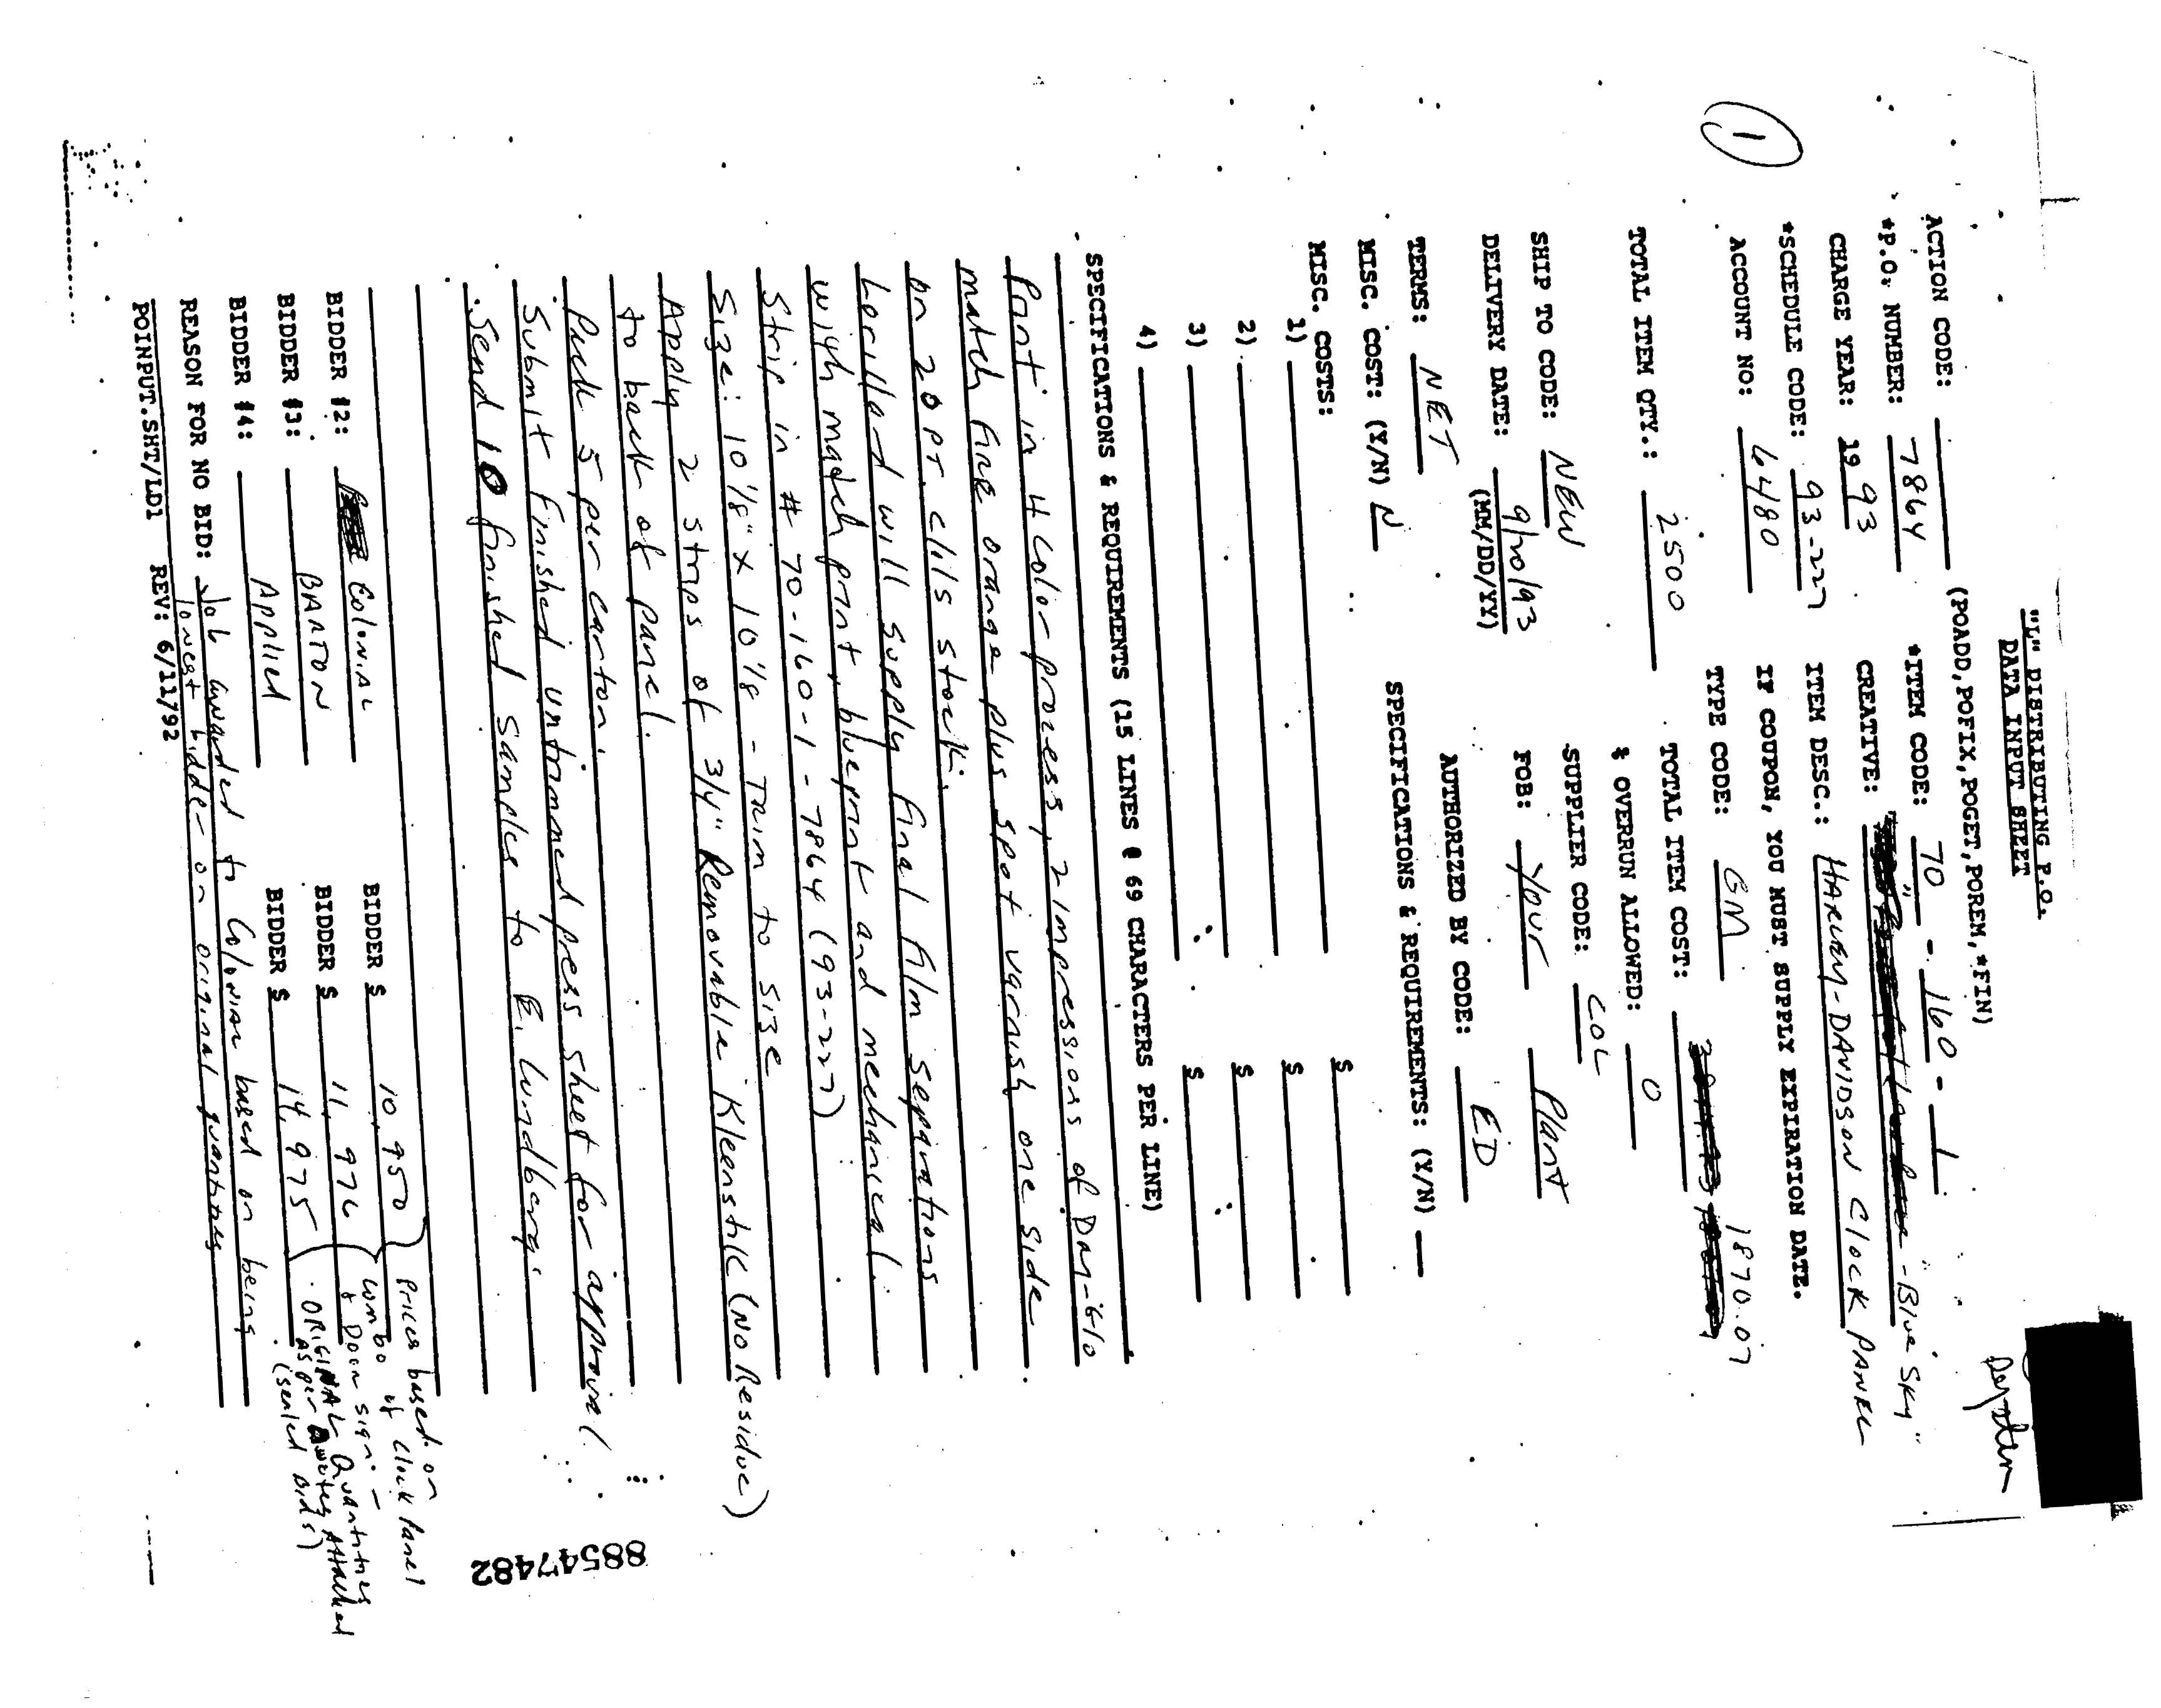 "L" DISTRIBUTING P.O.
DATA INPUT SHEET
ACTION CODE: (POADD,POFIX,POGET,POREM,*FIN)
*P.O. NUMBER: 7864 *ITEM CODE: 70 - 160 - 1
CHARGE YEAR: 19 93 CREATIVE: - Blue Sky"
*SCHEDULE CODE: 93-227 ITEM DESC.: HARLEY-DAVIDSON CLOCK PANEL
ACCOUNT NO: 6480 IF COUPON, YOU MUST SUPPLY EXPIRATION DATE.
TYPE CODE: GM 1870.07
TOTAL ITEM QTY.: 2500 TOTAL ITEM COST:
% OVERRUN ALLOWED: 0
SHIP TO CODE: NEW SUPPLIER CODE: COL
DELIVERY DATE: 9/10/93 FOB: Your Plant
(MM/DD/YY)
TERMS: NET AUTHORIZED BY CODE: ED
MISC. COST: (Y/N) N SPECIFICATIONS & REQUIREMENTS: (Y/N)
MISC. COSTS:
1) $
2) $
3) $
4) $
SPECIFICATIONS & REQUIREMENTS (15 LINES @ 69 CHARACTERS PER LINE)
Print in 4 color process, 2 impressions of Day-Glo
match fire orange plus spot varnish one side
on 20 PT. C1S stock.
Lorillard will supply final film separations
with match print, blueprint and mechanical.
Strip in # 70-160-1-7864 (93-227)
Size: 10 1/8" x 10 1/8 - Trim to size
Apply 2 strips of 3/4" Removable Kleenstik (No Residue)
to back of panel.
Pack 5 per carton.
Submit finished untrimmed press sheet for approval.
Send 10 finished samples to E. Lundberg.
BIDDER #2: Colonial BIDDER $ 10,950
BIDDER #3: BARTON BIDDER $ 11,976
BIDDER #4: Applied BIDDER $ 14,975
Prices based on
combo of clock panel
& Door sign -
ORIGINAL Quantities
as per quotes attached
(sealed bids)
REASON FOR NO BID: Job awarded to Colonial based on being
lowest bidder on original quantities
POINPUT.SHT/LD1 REV: 6/11/92
1
88547482